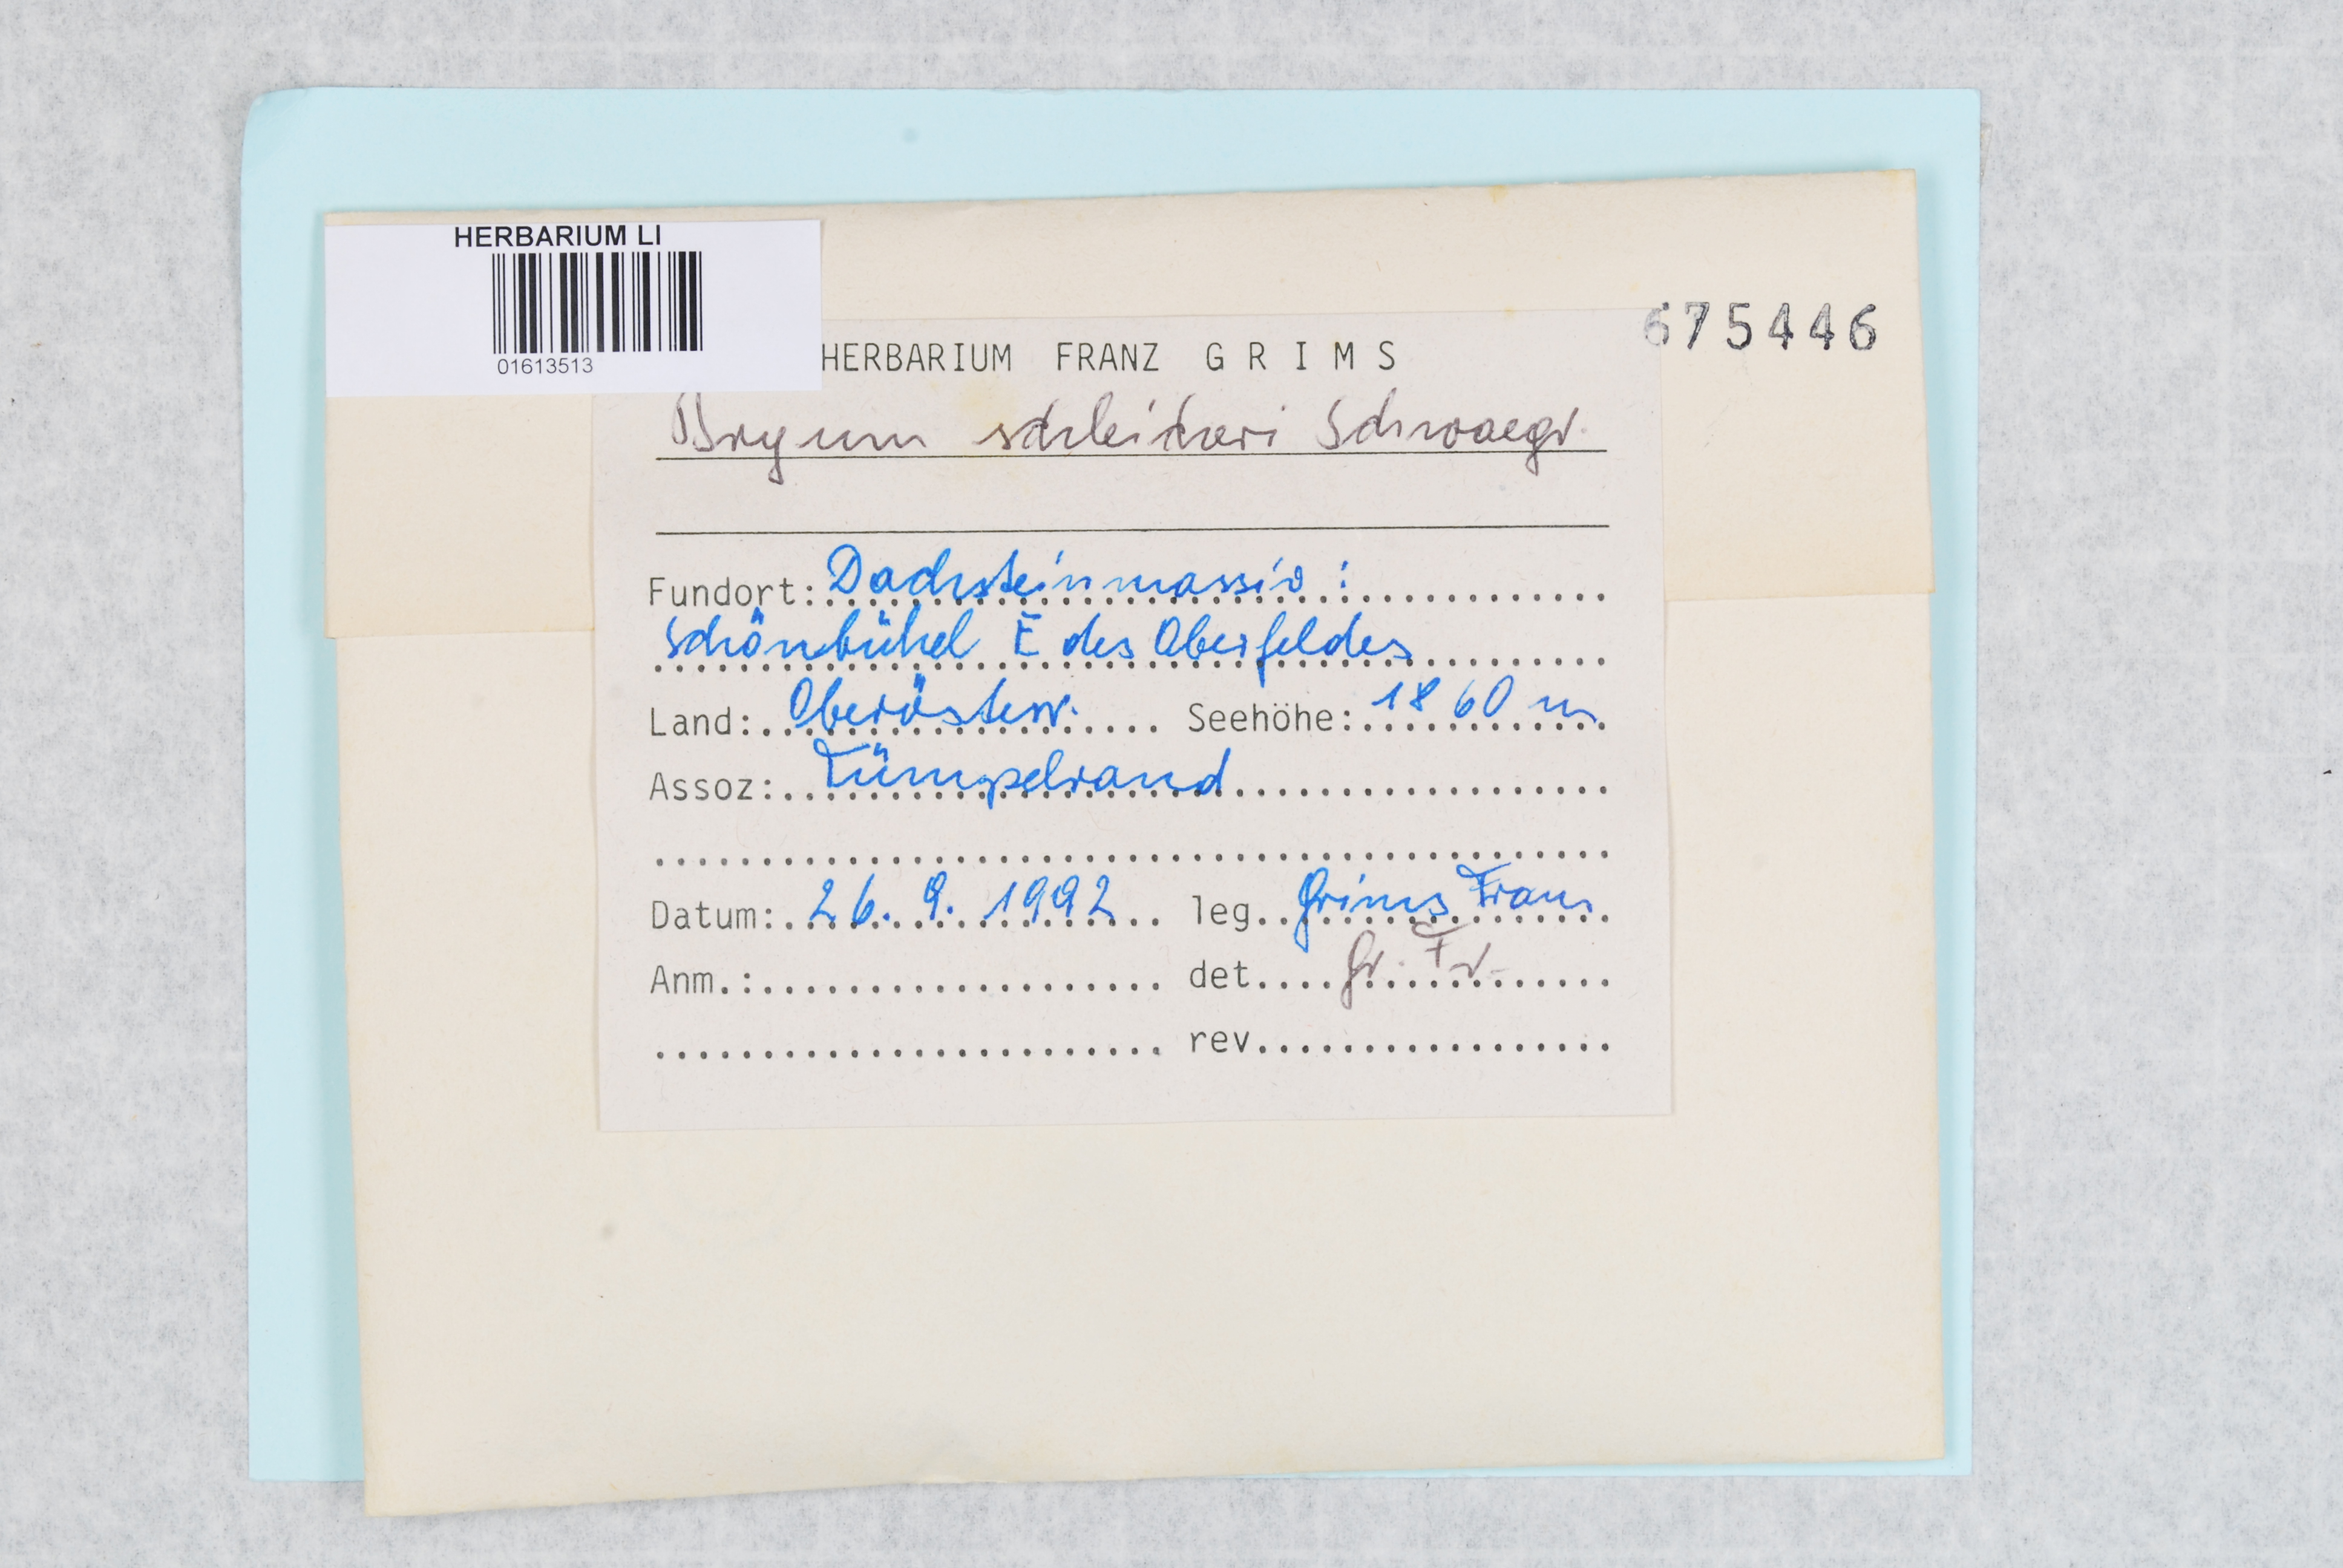 HERBARIUM LI
01613513
675446
HERBARIUM FRANZ G R I M S
Bryum schleicheri Schwaegr.
Fundort: Dachsteinmassiv:
Schönbühel E des Oberfeldes
Land: Oberösterr. Seehöhe: 1860 m
Assoz: Tümpelrand
Datum: 26. 9. 1992 leg. Grims Franz
Anm.: det. Gr. Fr.
rev.